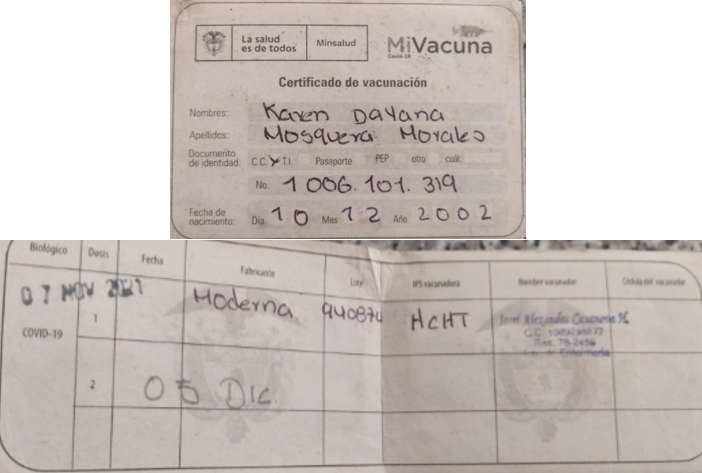 La salud
es de todos
Minsalud
MiVacuna
Covid-19
Certificado de vacunación
Nombres: Karen Dayana
Apellidos: Mosquera Morales
Documento
de identidad: C.C. X T.I. Pasaporte PEP otro cuál:
No. 1 006.101.319
Fecha de
nacimiento: Día 10 Mes 12 Año 2002
Biológico Dosis Fecha Fabricante Lote IPS vacunadora Nombre vacunador Cédula del vacunador
07 NOV 2021
COVID-19 1 Moderna 940874 HCHT
2 05 DIC.